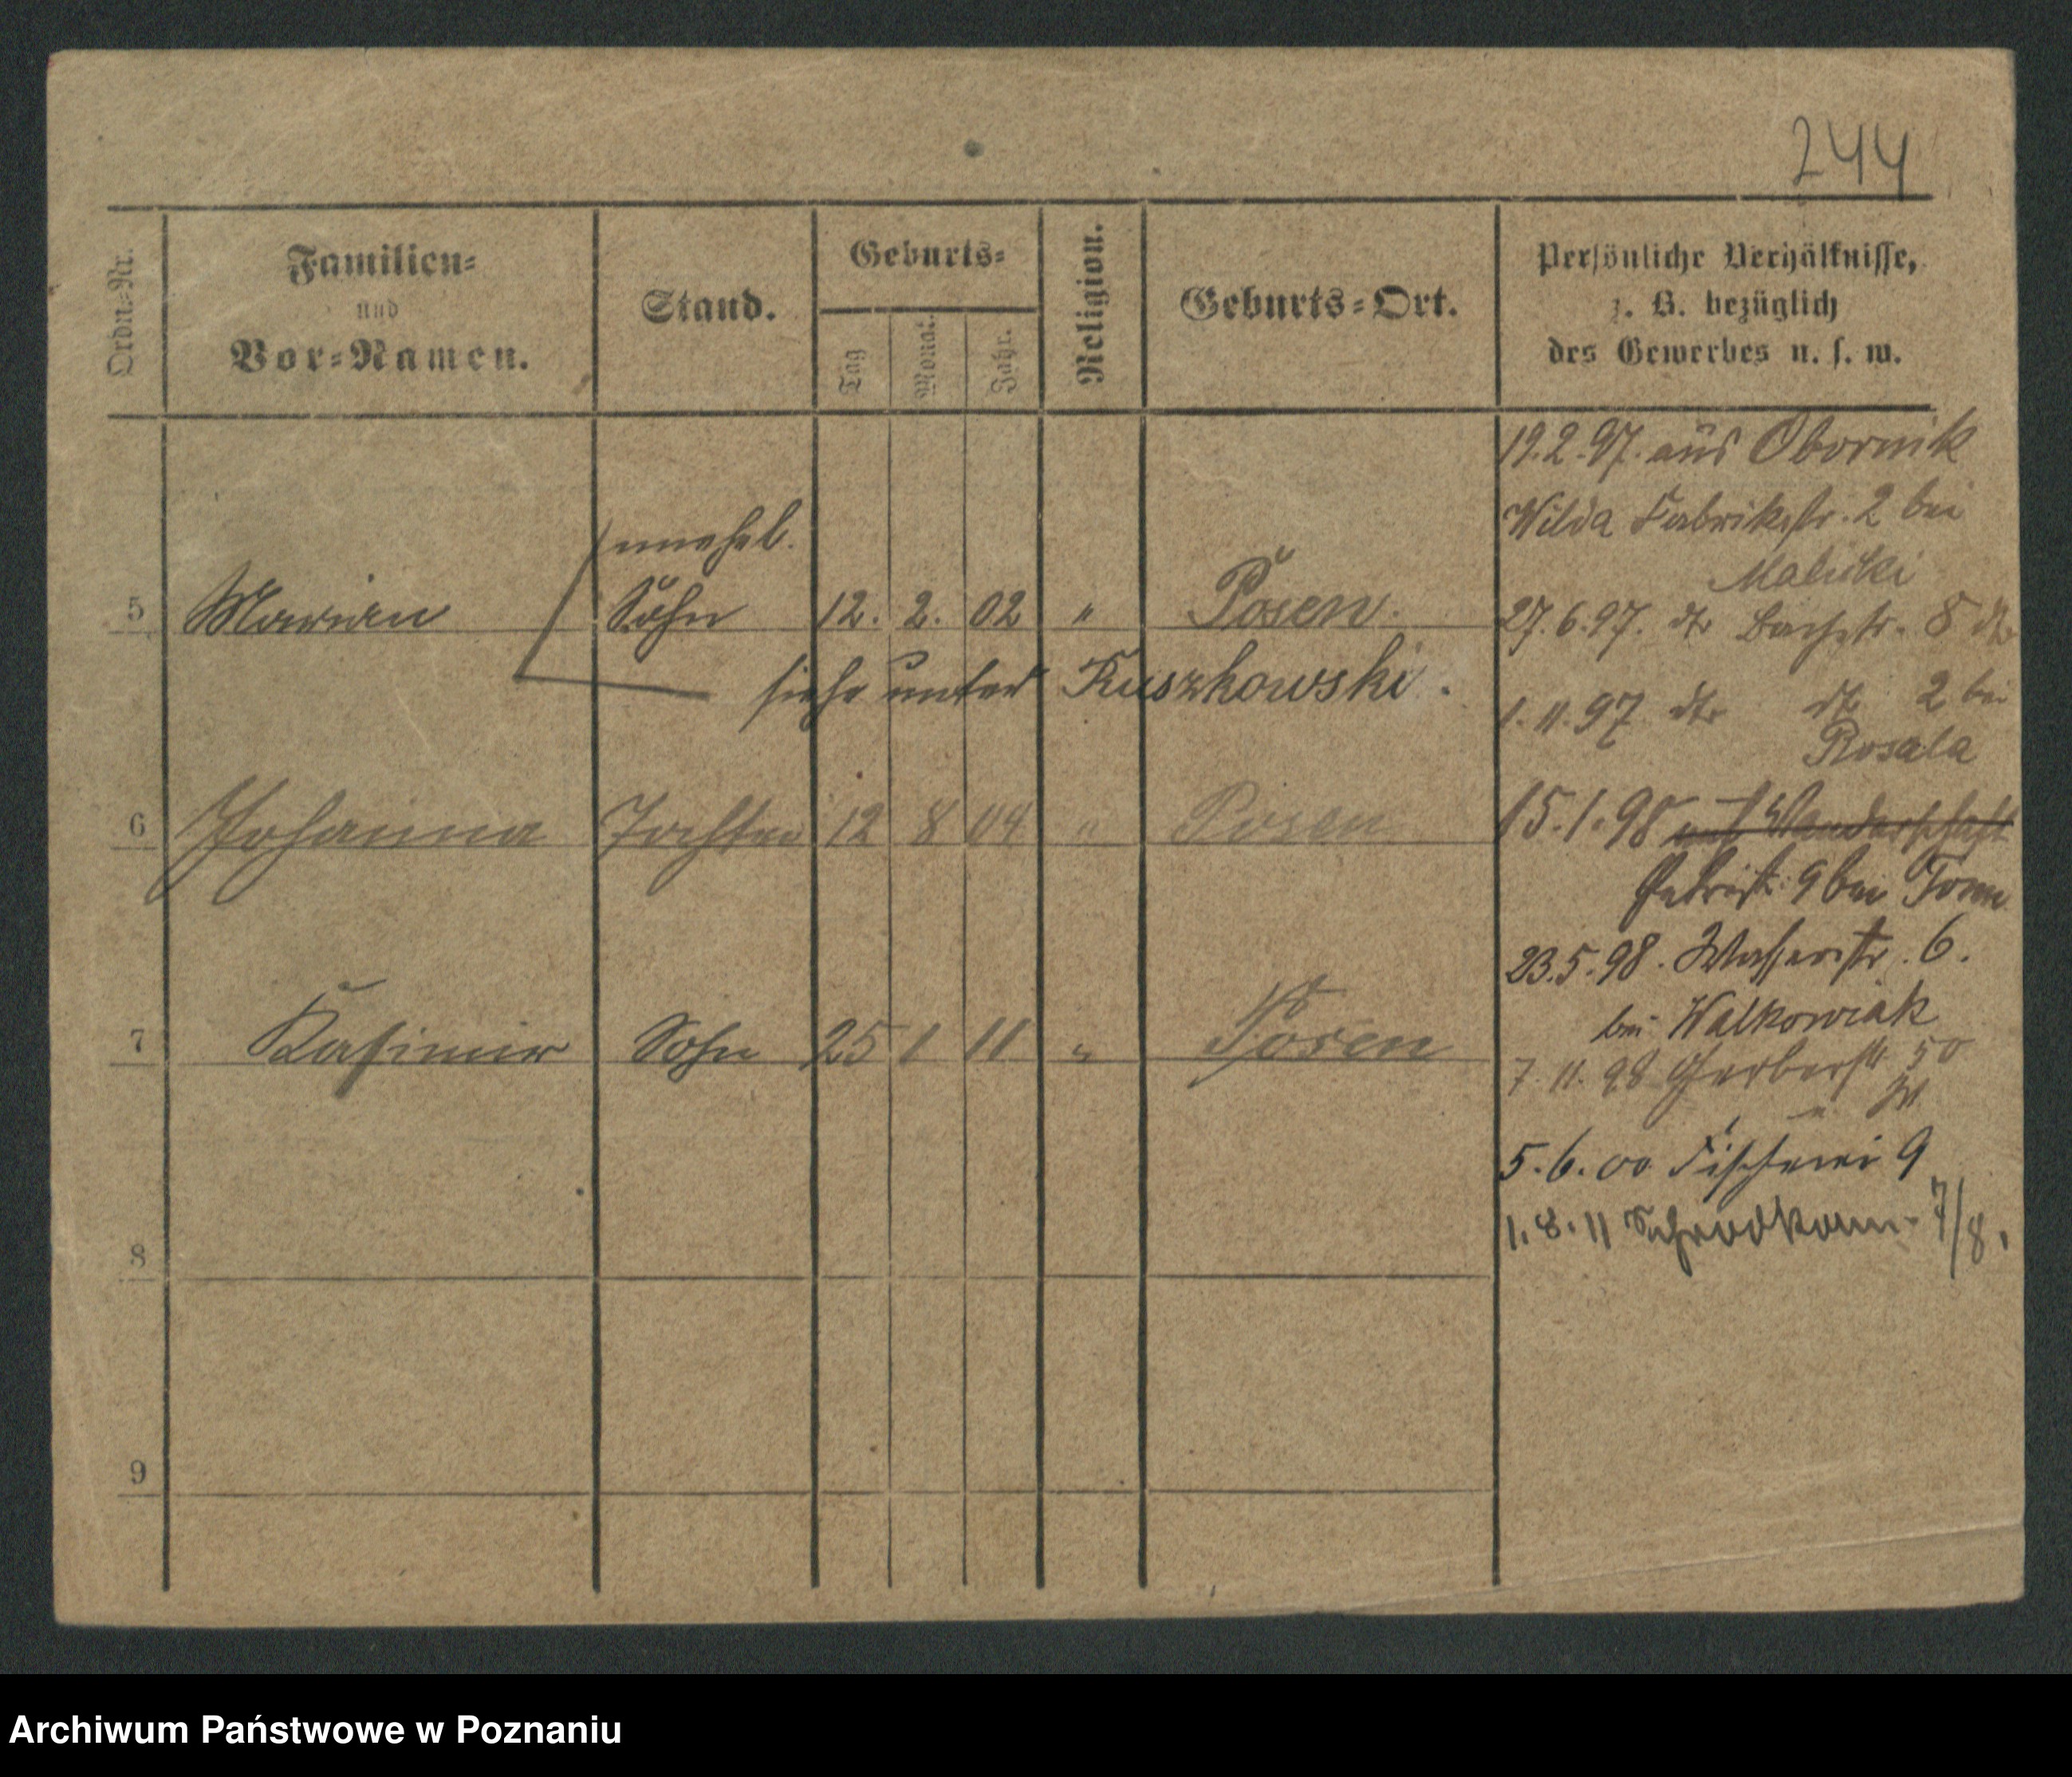 244
Ordn.-Nr. Familien- und Vor-Namen. Stand. Geburts- Tag Monat. Jahr. Religion. Geburts-Ort. Persönliche Verhältnisse, z. B. bezüglich des Gewerbes u. s. w.
19.2.97. aus Obornik
Wilda Fabrikstr. 2 bei
Malicki
unehel.
5 Marian Sohn 12. 2. 02 " Posen.
27.6.97. dto Bachstr. 8
siehe unter Kuszkowski.
1.11.97 dto dto 2 bei
Rosala
6 Johanna Tochter 12 8 04 " Posen
15.1.98 auf Wanderschaft
9 bei
23.5.98. Wasserstr. 6.
bei Walkowiak
7 Kasimir Sohn 25 1 11 " Posen
7.11.98 Gerberstr 50
W
5.6.00 Fischerei 9
1.8.11 Schrodkam. 7/8.
8
9
Archiwum Państwowe w Poznaniu